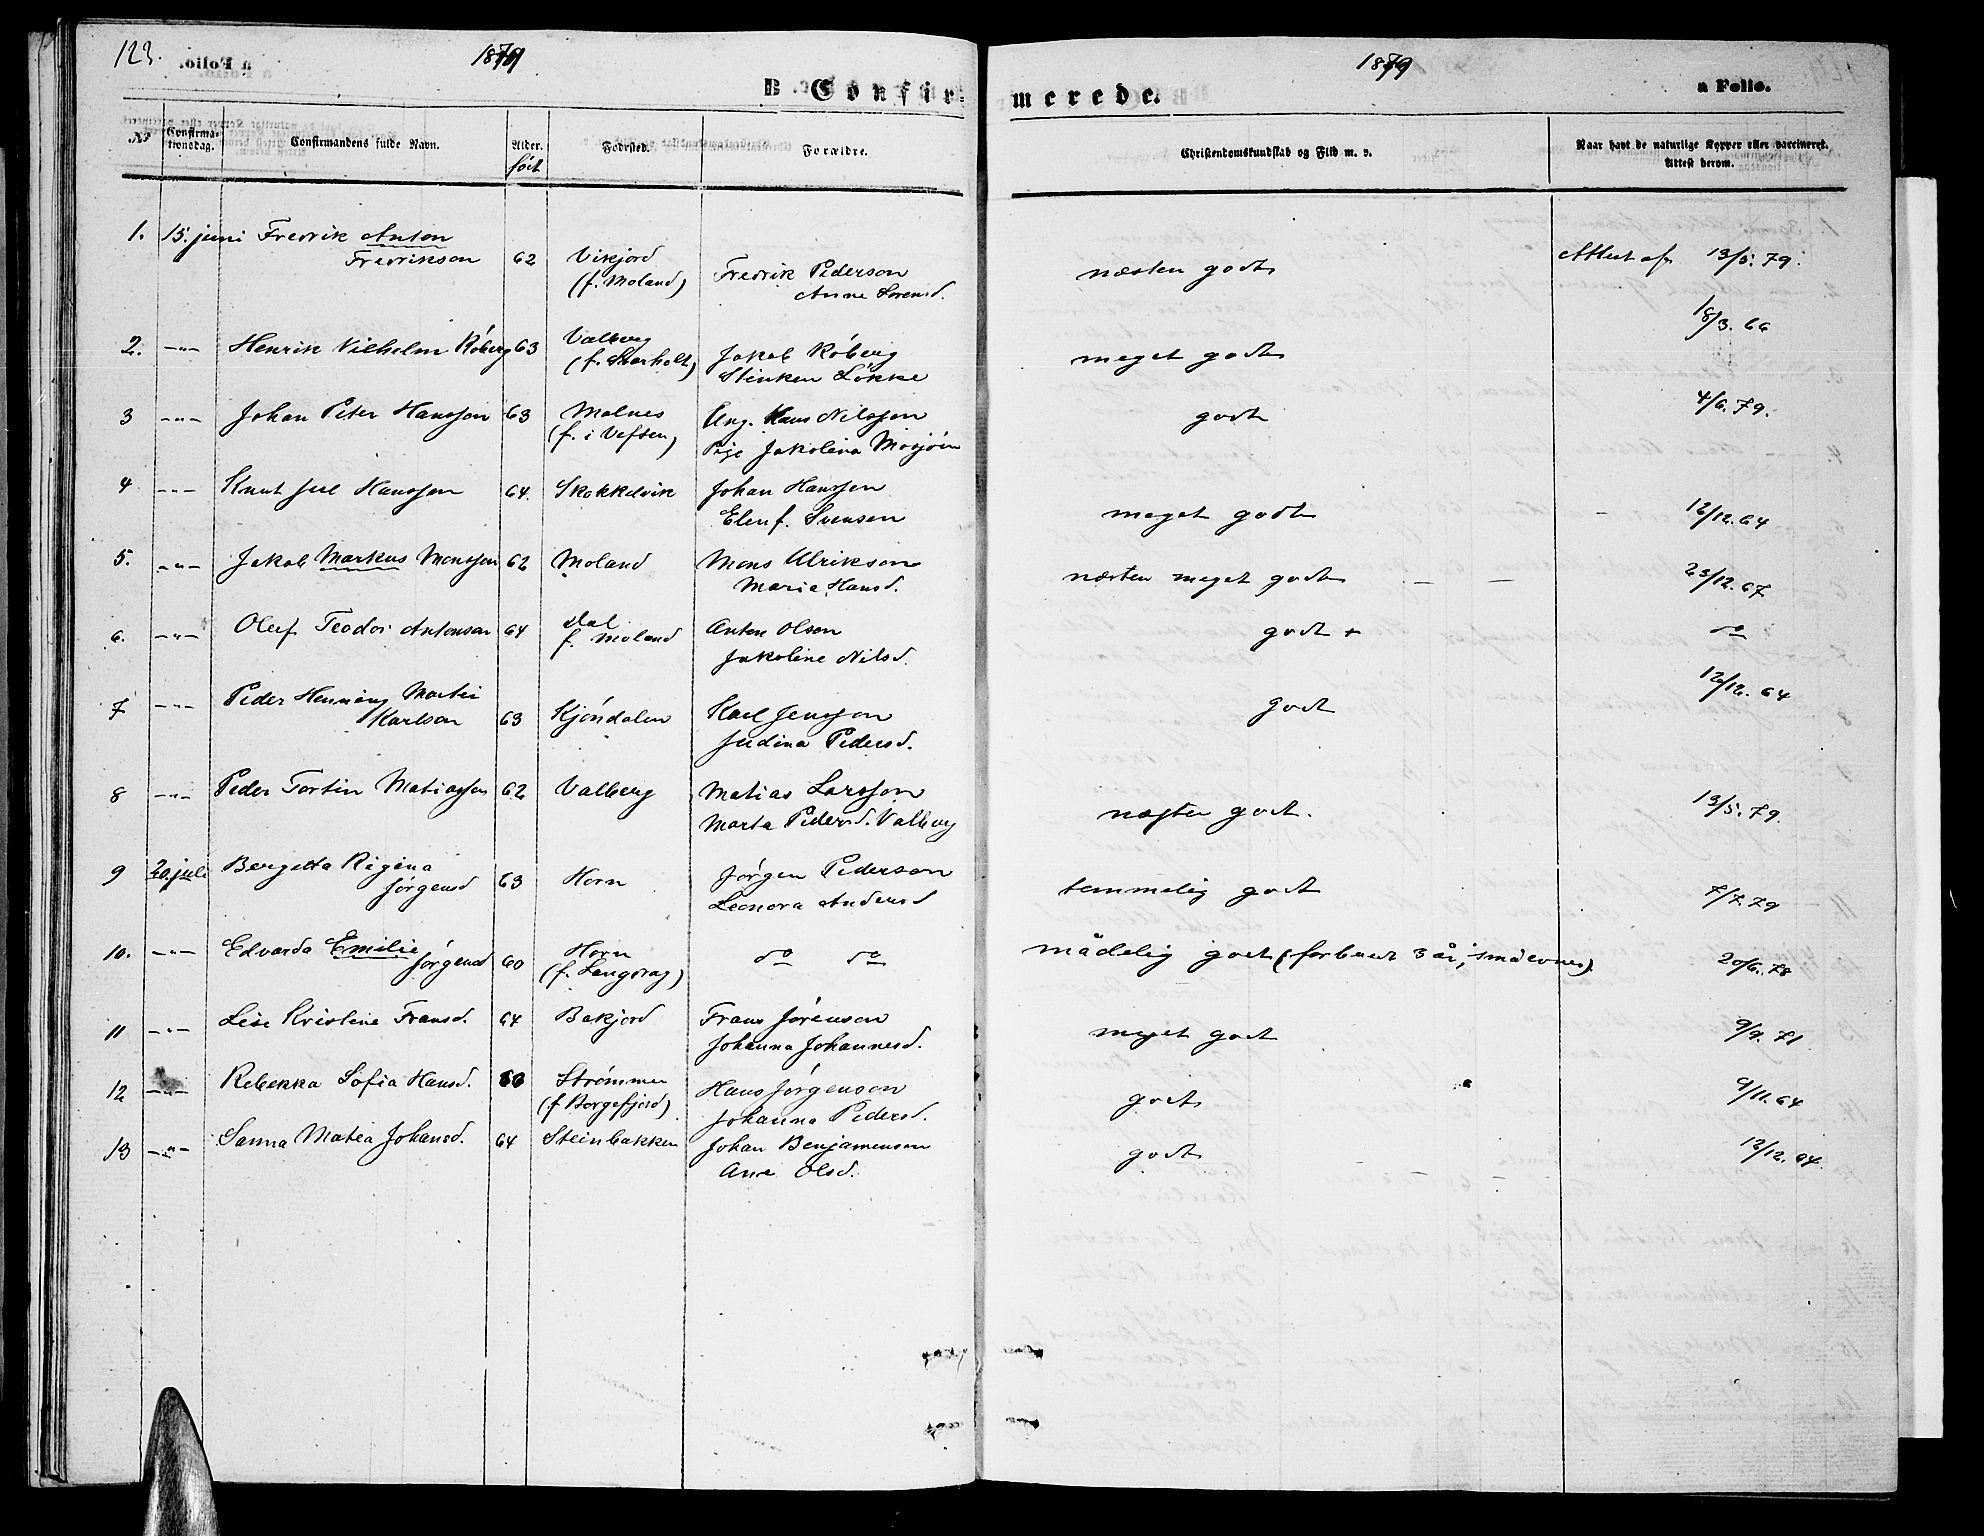 123.
1879
1879
a Folio.
B. Confir-
merede.
No
Confirma-
tionsdag.
Confirmandens fulde Navn.
Alder.
født
Fødested.
Forældre.
Christendomskundskab og Flid m. v.
Naar havt de naturlige Kopper eller vaccineret.
Attest derom.
1. 15. juni Fredrik Anton
Fredrikson 62 Vikjord
(f. Moland) Fredrik Pederson
Anne Sorensd. næsten godt Attest af 13/5. 79.
2. -"- Henrik Vilhelm Röberg 63 Valberg
(f. Svarholt) Jakob Röberg
Stinken Lökke meget godt 18/3. 66
3 -"- Johan Peter Hansson 63 Molnes
(f. i Vefsen) Ung. Hans Nilsson
Pige Jakolina Mosjöen godt 4/6. 79.
4 -"- Knut Juel Hansson 64. Skokkelvik Johan Hansson
Elen f. Svensen meget godt 12/12. 64
5. -"- Jakob Markus Monsson 62 Moland Mons Ulrikson
Maria Hansd. næsten meget godt 23/12. 67
6. -"- Oluf Teodor Antonson 64 Dal
f. Moland Anton Olson
Jakoline Nilsd. godt + do
7 -"- Peder Henning Martin
Karlson 63 Kjöndalen Karl Jensson
Judina Pedersd. godt 12/12. 64
8 -"- Peder Tortin Matiasson 62 Valberg Matias Larsson
Marta Pedersd. Valberg næsten godt. 13/5. 79.
9 20. juli Bergetta Regina
Jörgensd 63 Horn Jörgen Pederson
Leonora Andersd temmelig godt 7/7. 79
10. -"- Edvarda Emilie
Jörgensd 60 Horn
(f. Langdrag) do do mådelig godt (forbuet 3 år; småevner). 20/6. 78
11 -"- Lise Kristine Fransd. 64 Bakjord Frans Jörenson
Johanna Johannesd. meget godt 9/9. 71
12 -"- Rebekka Sofia Hansd. 60 Strømmen
(f Borgefjord) Hans Jörgenson
Johanna Pedersd. godt 9/11. 64
13 -"- Sanna Matea Johansd. 64 Steinbakken Johan Benjamenson
Ane Olsd. godt 12/12. 64.